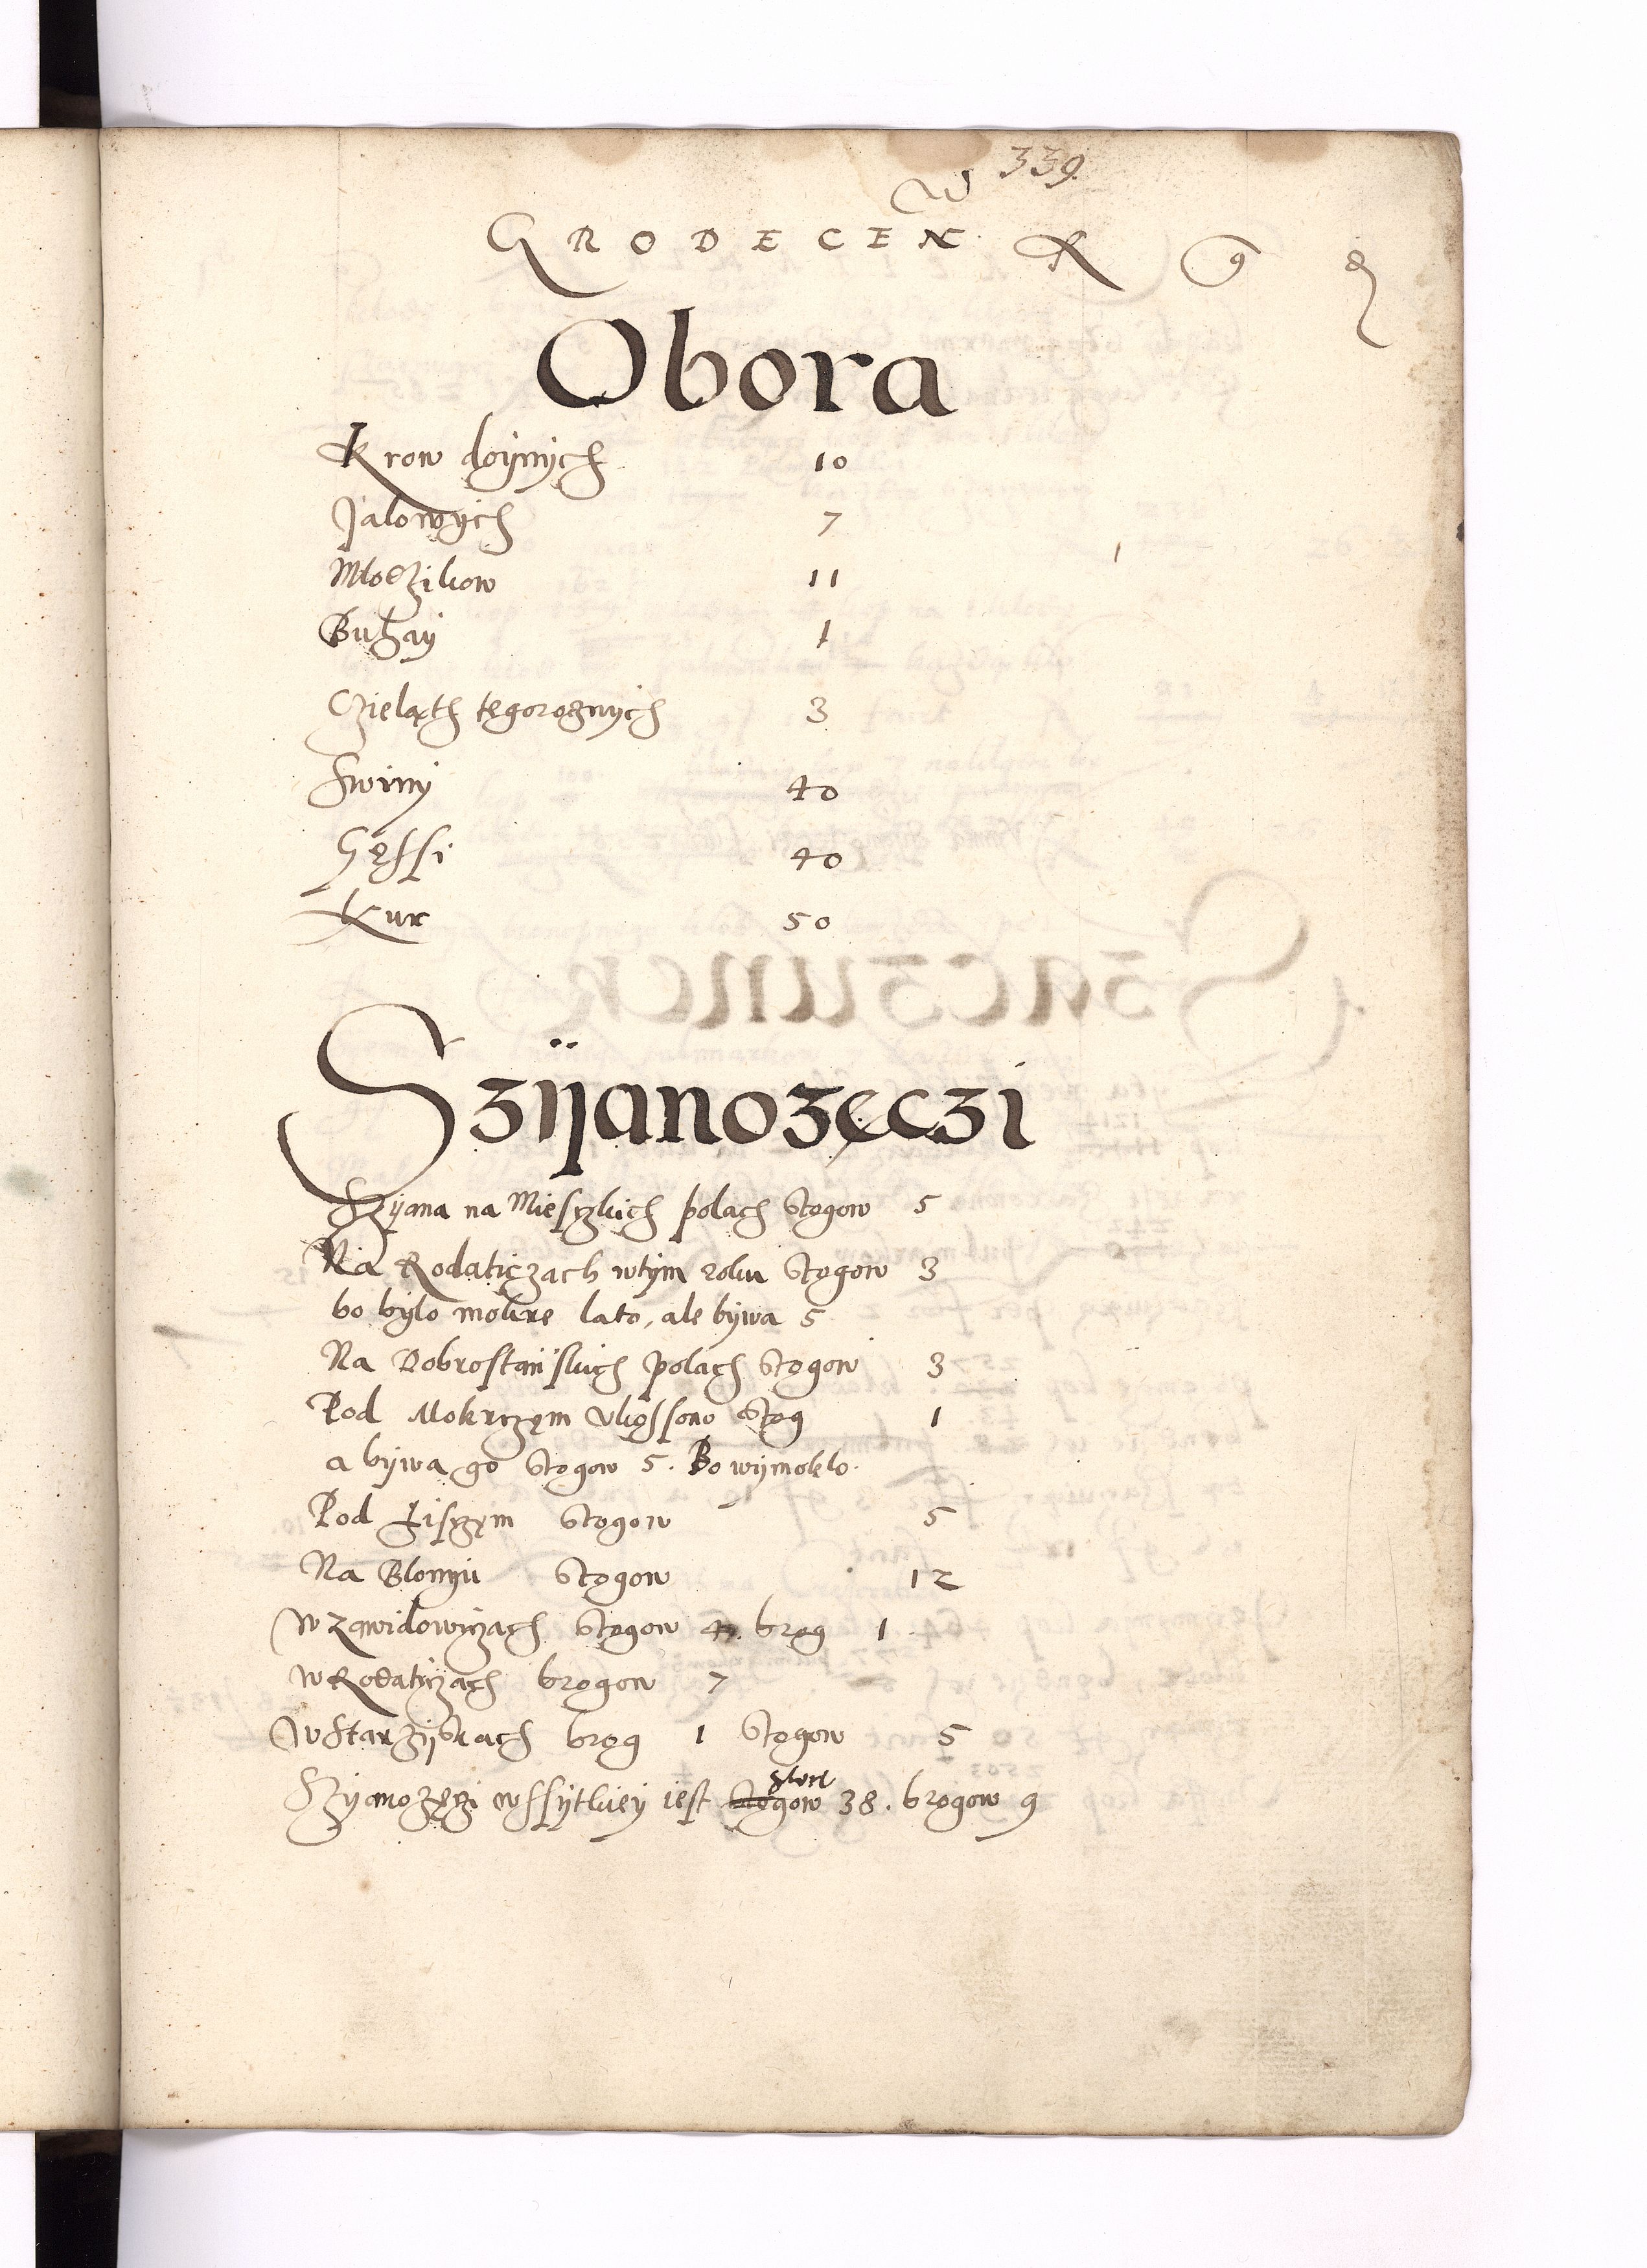 339
GRODECEN R 9 8
Obora
Krow doijnych 10
Jalowych 7
Młodzikow 11
Buhay 1
Czieląth tegorognych 3
Swiny 40
Gęssi 40
Kur 50
Szÿanozęczi
Szÿana na Miesczkich polach stogow 5
Na Rodaticzach wtÿm roku stogow 3
bo bÿlo mokre lato, ale bÿwa 5
Na Dobrostańskich polach stogow 3
Pod Mokrczęm vkossono stog 1
a bÿwa go stogow 5. Bo wÿmoklo.
Pod Lisczęm stogow 5
Na Blonyu stogow 12
W Zawidowiczach stogow 4. brog 1.
w Rodatyczach brogow 7
W Starzÿskach brog 1 stogow 5
Szyanozęczi wssytkiey iest stogow 38. brogow 9